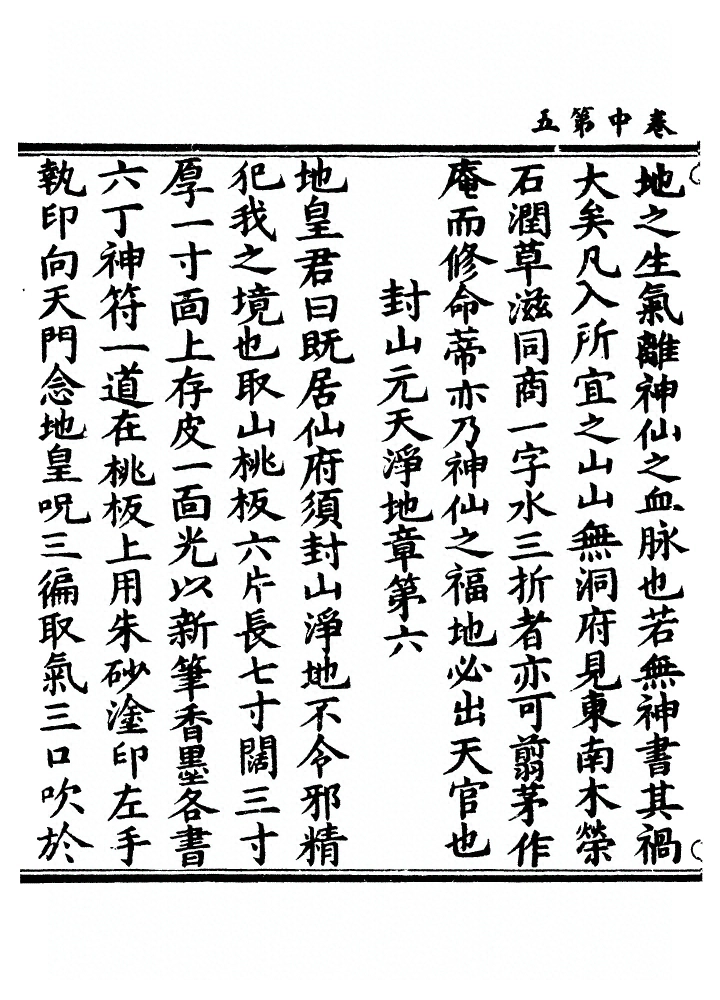 卷中第五
地之生氣離神仙之血脉也若無神書其禍
大矣凡入所宜之山山無洞府見東南木榮
石潤草滋同商一字水三折者亦可翦茅作
庵而修命蒂亦乃神仙之福地必出天官也
封山元天淨地章第六
地皇君曰既居仙府須封山淨地不令邪精
犯我之境也取山桃板六片長七寸闊三寸
厚一寸面上存皮一面光以新筆香墨各書
六丁神符一道在桃板上用朱砂塗印左手
執印向天門念地皇呪三徧取氣三口吹於